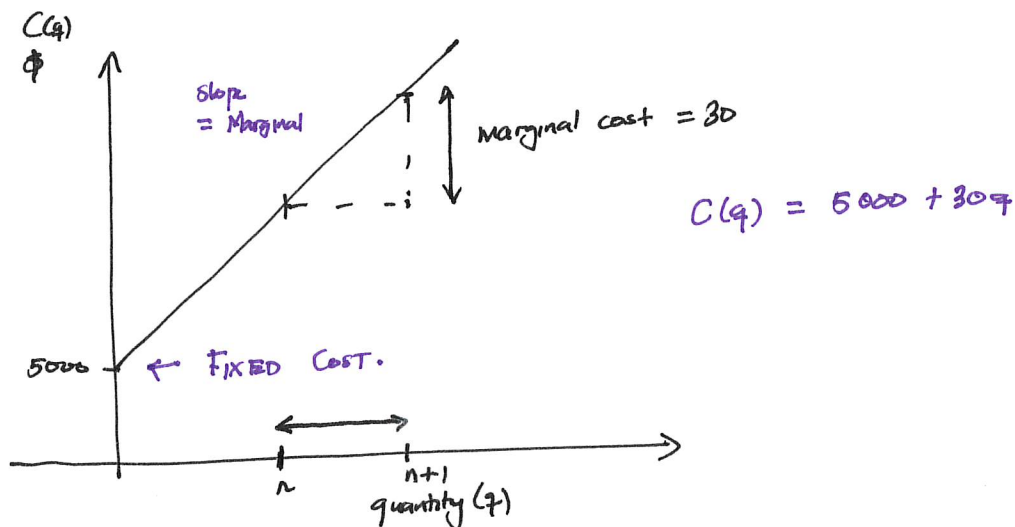 C(q)
$
slope
= Marginal
marginal cost = 30
C(q) = 5000 + 30q
5000
← FIXED COST.
n
n+1
quantity (q)